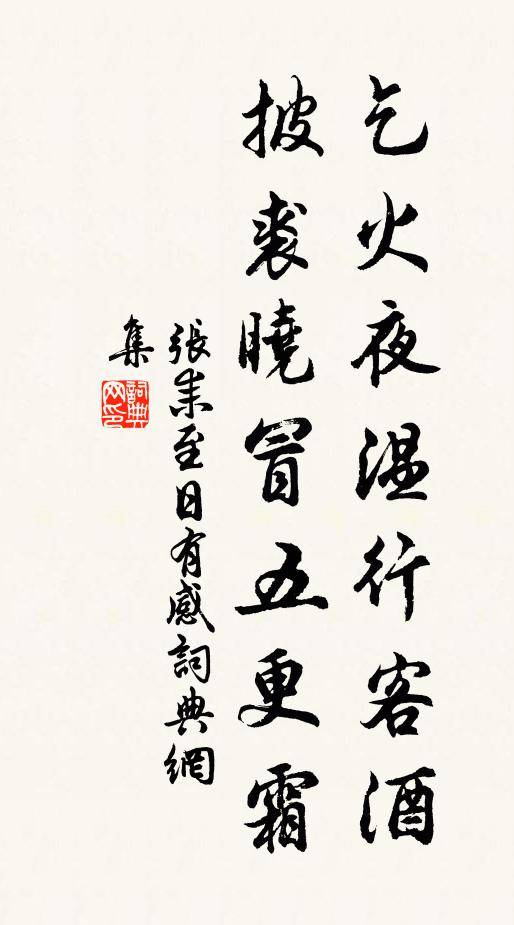 乞火夜温行客酒
披裘曉冒五更霜
張耒至日有感詞典網
集
詞典網印